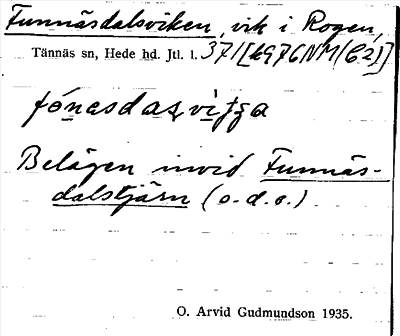 Funnäsdalsviken, vik i Rogen,
Tännäs sn, Hede hd. Jtl. l. 371 [6976NM(C2)]
fónesdasviʃga
Belägen invid Funnäs-
dalstjärn (o.d.o.).
O. Arvid Gudmundson 1935.